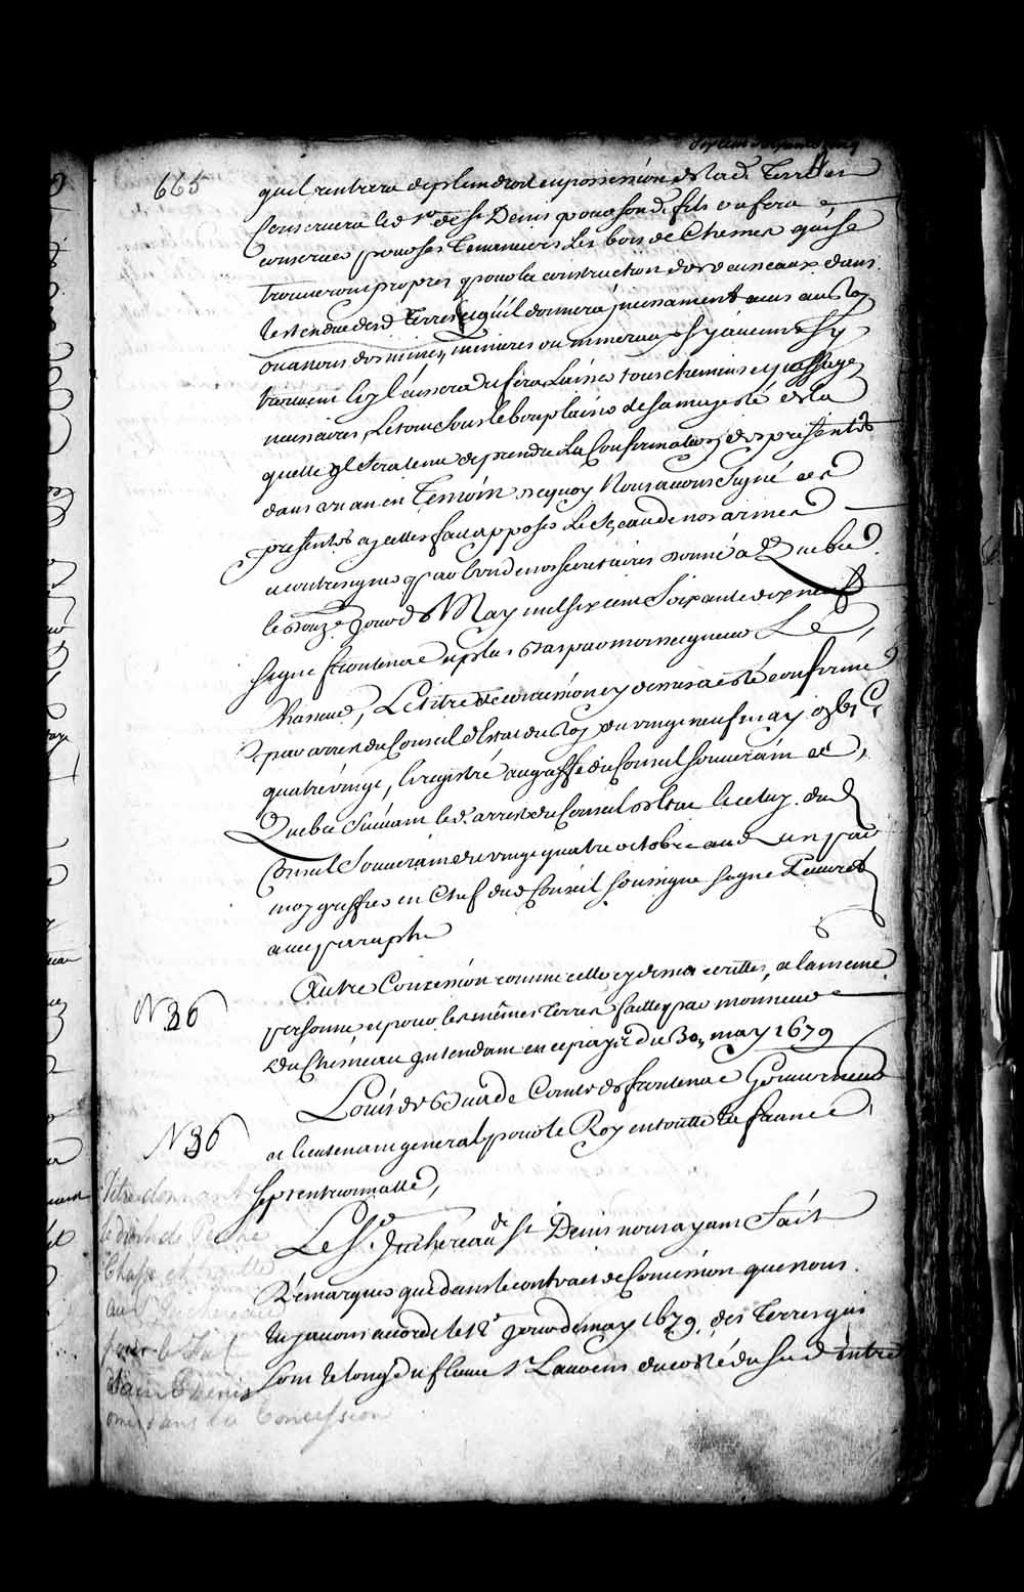 665
quil rentrera de plein droit en possession de lad. Terre et
conservera led. Sr. de St Denis pour sond. fils ou fera
conserver pour ses Tenanciers les bois de Chesnes qui se
trouveront propres pour la construction des vaisseaux dans
lestendue desd. Terres quil donnera incessament avis au Roy
ou a nous des mines, minieres ou mineraux sy aucuns sy
trouvent le laissera et fera laisser tous chemins et passages
necessaires, Le tout sous le bon plaisir de sa majesté de la
quelle il sera tenu de prendre la Confirmation des presentes
dans un an en Temoin de quoy Nous avons signé ces
presentes a icelles fait apposer le sceau de nos armes
et contresigner par lun de nos secretaires donné a Quebec
le douze jour de May mil six cent soixante dix neuf
signé frontenac et plus bas par monseigneur Le
Chasseur, Le titre de concession cy dessus a esté confirmé
par arrest du Conseil destat du Roy du vingt neuf may gbic
quatrevingt, Enregistré au greffe du Conseil souverain de
Quebec suivant led. arrest du Conseil destat et celuy dud
Conseil souverain du vingt quatre octobre aud. an par
moy greffier en Chef dud Conseil soussigné signé Peuvret
avec paraphe
N 36
Autre Concession comme celle cy dessus escritte, a la mesme
personne et pour les mêmes Terres faitte par monsieur
Du Chesneau intendant en ce pays du 30, may 1679
N 36
Louis de Buade Comte de frontenac Gouverneur
et lieutenant general pour le Roy en toutte la france
septentrionnalle,
Le Sr. Juchereau de St Denis nous ayant fait
Remarquer que dans le contract de Concession que nous
luy avons accordé le 12e jour de may 1679, des Terres qui
sont le long du fleuve St Laurens du costé du sud entre
Titre donnant
le droit de Peche
Chasse et traitte
au Sr Juchereau
pour le fief
Saint Denis
omis dans la Concession